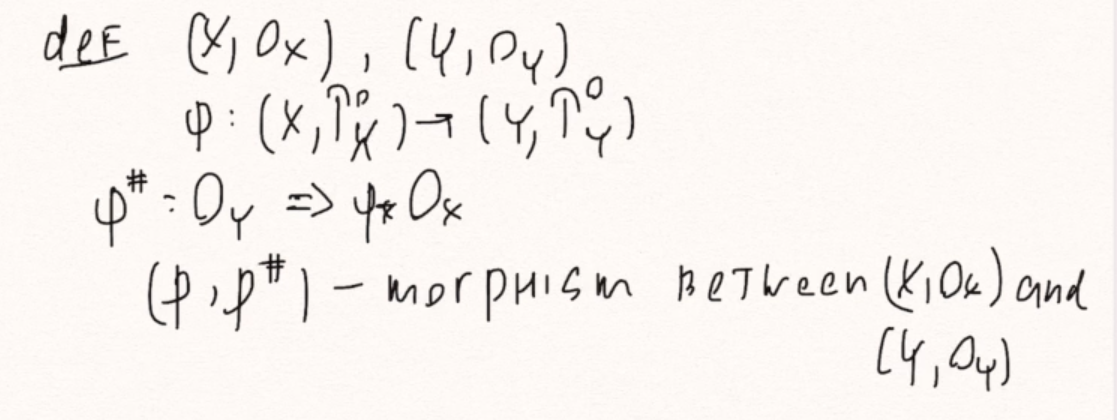 def (X, O_X), (Y, O_Y)
φ: (X, T^o_X) → (Y, T^o_Y)
φ^# : O_Y => φ_* O_X
(φ, φ^#) – morphism between (X, O_X) and
(Y, O_Y)